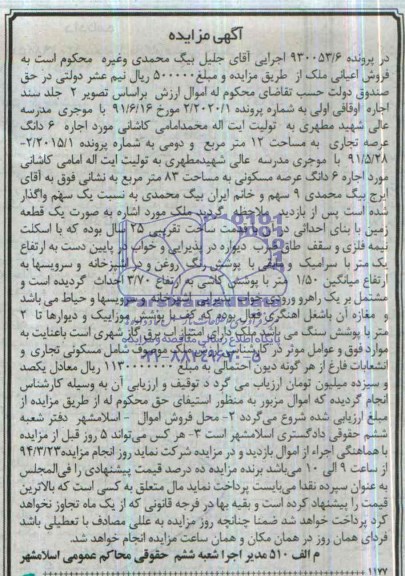 آگهی مزایده
در پرونده ۹۳۰۰۵۳/۶ اجرایی آقای جلیل بیگ محمدی وغیره محکوم است به
فروش اعیانی ملک از طریق مزایده و مبلغ ۵۰۰۰۰۰ ریال نیم عشر دولتی در حق
صندوق دولت حسب تقاضای محکوم له اموال ارزش براساس تصویر ۲ جلد سند
اجاره اوقافی اولی به شماره پرونده ۲/۲۰۲۰/۱ مورخ ۹۱/۶/۱۶ با موجری مدرسه
عالی شهید مطهری به تولیت ایت اله محمدامامی کاشانی مورد اجاره ۶ دانگ
عرصه تجاری به مساحت ۱۲ متر مربع و دومی به شماره پرونده ۲/۲۰۱۵/۱-
۹۱/۵/۲۸ با موجری مدرسه عالی شهیدمطهری به تولیت ایت اله امامی کاشانی
مورد اجاره ۶ دانگ عرصه مسکونی به مساحت ۸۳ متر مربع به نشانی فوق به آقای
ایرج بیگ محمدی ۹ سهم و خانم ایران بیگ محمدی به نسبت یک سهم واگذار
شده است پس از بازدید ملاحظه گردید ملک مورد اشاره به صورت یک قطعه
زمین با بنای احداثی در آن به قدمت ساخت تقریبی ۲۵ سال بوده که با اسکلت
نیمه فلزی و سقف طاق ضربی دیواره در پذیرایی و خواب در پایین دست به ارتفاع
یک متر با سرامیک و مابقی با پوشش رنگ روغن و در آشپزخانه و سرویسها به
ارتفاع میانگین ۱/۵۰ متر با پوشش کاشی به ارتفاع ۳/۷۰ احداث گردیده است و
مشتمل بر یک راهرو ورودی خواب پذیرایی آشپزخانه و سرویسها و حیاط می باشد
و مغازه آن باشغل اهنگری فعال بوده که کف با پوشش موزاییک و دیوارها تا ۲
متر با پوشش سنگ می باشد ملک دارای امتیاز اب برق گاز شهری است باعنایت به
موارد فوق و عوامل موثر در کارشناسی ارزش ملک موصوف شامل مسکونی تجاری و
انشعابات فارغ از هر گونه دیون احتمالی به مبلغ ۱۱۳۰۰۰۰۰۰۰ ریال معادل یکصد
و سیزده میلیون تومان ارزیاب می گرد د توقیف و ارزیابی آن به وسیله کارشناس
انجام گردیده که اموال مزبور به منظور استیفای حق محکوم له از طریق مزایده از
مبلغ ارزیابی شده شروع می‌گردد ۲- محل فروش اموال – اسلامشهر دفتر شعبه
ششم حقوقی دادگستری اسلامشهر است ۳- هر کس می‌تواند ۵ روز قبل از مزایده
با هماهنگی اجراء از اموال بازدید و در مزایده شرکت نماید روز انجام مزایده ۹۴/۳/۲۳
از ساعت ۹ الی ۱۰ می‌باشد برنده مزایده ده درصد قیمت پیشنهادی را فی‌المجلس
به عنوان سپرده نقدا می‌بایست پرداخت نماید مال متعلق به کسی است که بالاترین
قیمت را پیشنهاد کرده است و بقیه بها در فرجه قانونی که از یک ماه تجاوز نخواهد
کرد پرداخت خواهد شد ضمنا چنانچه روز مزایده به عللی مصادف با تعطیلی باشد
فردای همان روز در همان مکان و همان ساعت مزایده انجام خواهد شد.
م الف ۵۱۰ مدیر اجرا شعبه ششم حقوقی محاکم عمومی اسلامشهر
۱۱۷۷